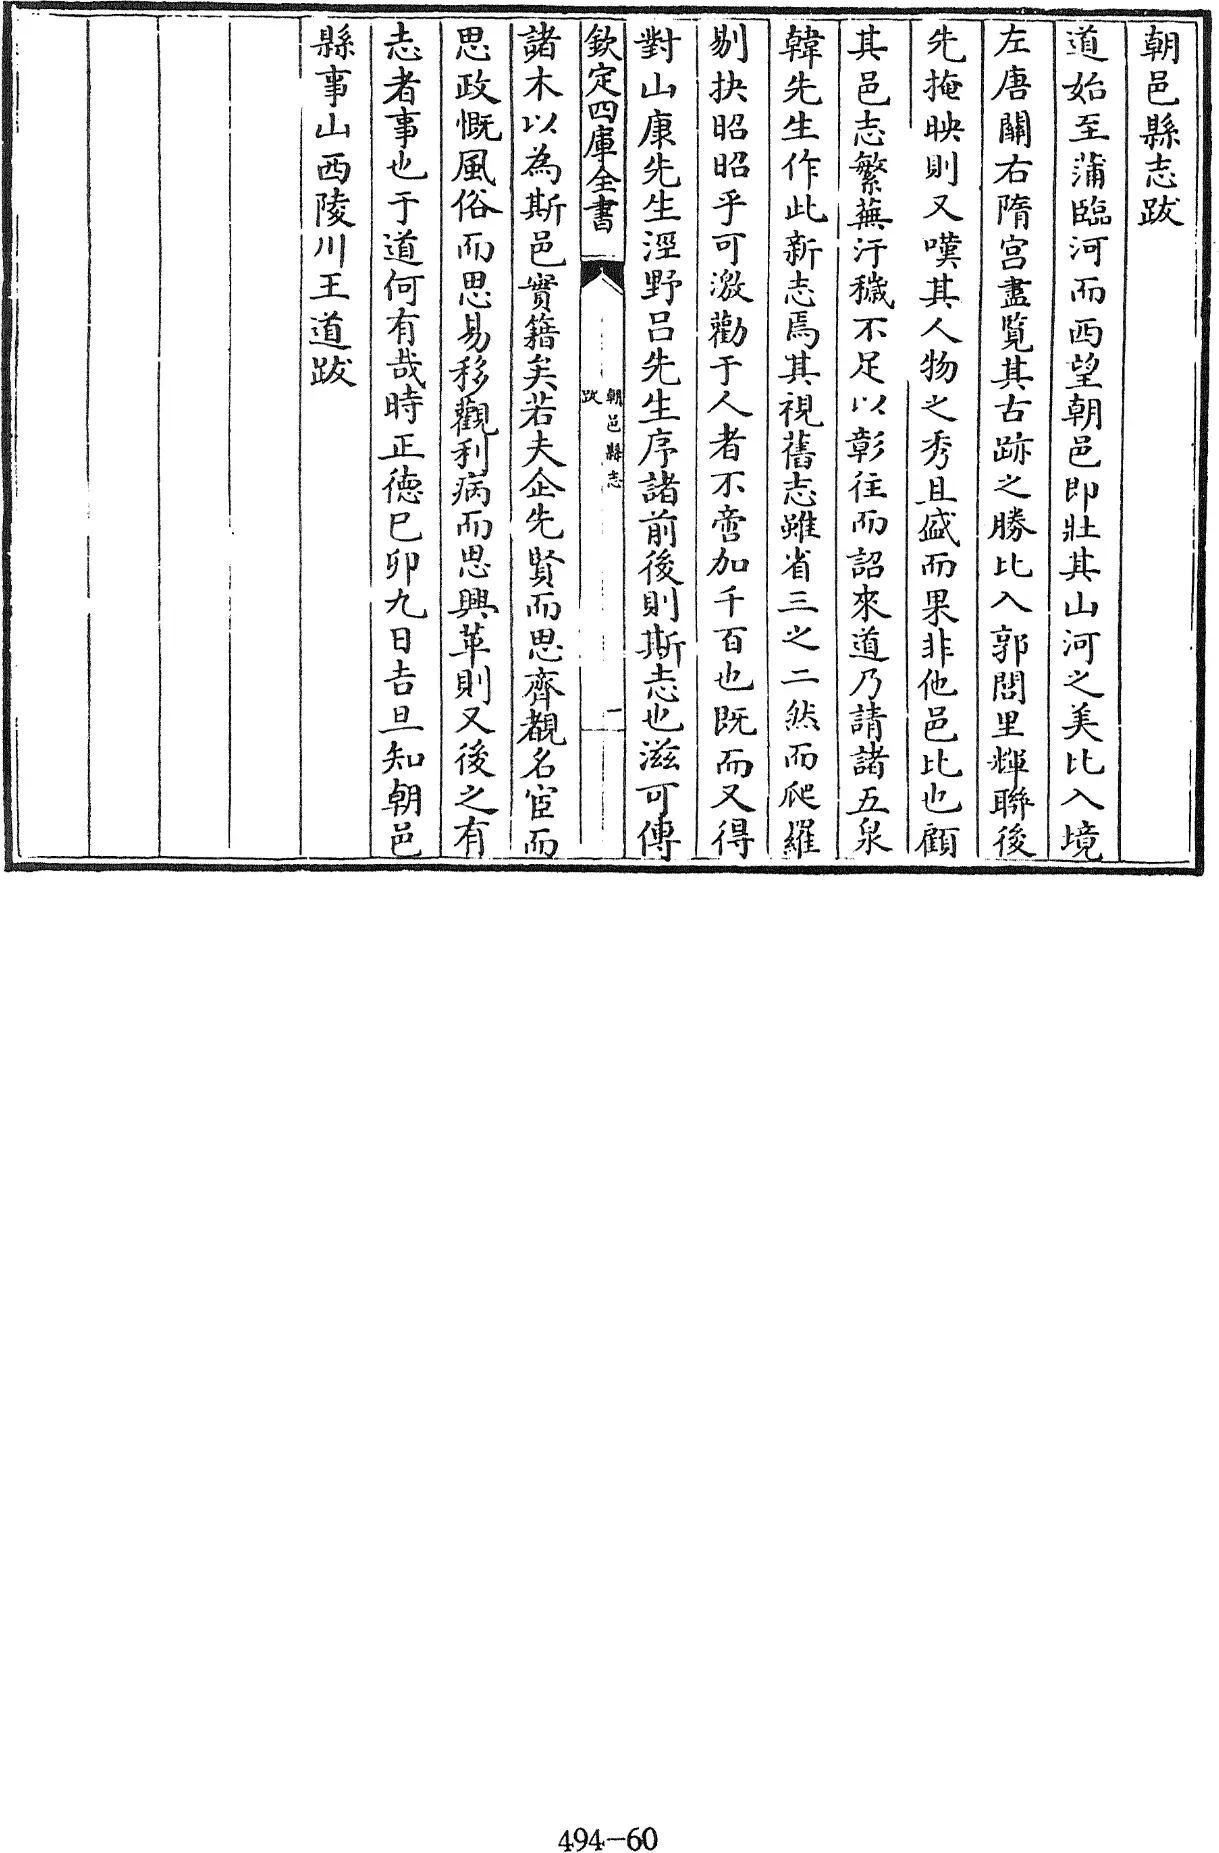 朝邑縣志跋
道始至蒲臨河而西望朝邑即壯其山河之美比入境
左唐關右隋宫盡覽其古跡之勝比入郭閭里輝聯後
先掩映則又嘆其人物之秀且盛而果非他邑比也顧
其邑志繁蕪汙穢不足以彰徃而詔來道乃請諸五泉
韓先生作此新志焉其視舊志雖省三之二然而爬羅
剔抉昭昭乎可激勸于人者不啻加千百也既而又得
對山康先生涇野吕先生序諸前後則斯志也滋可傳
欽定四庫全書
朝邑縣志
跋
一
諸木以為斯邑實籍矣若夫企先賢而思齊覩名宦而
思政慨風俗而思易移觀利病而思興革則又後之有
志者事也于道何有哉時正徳己卯九日吉旦知朝邑
縣事山西陵川王道跋
494-60